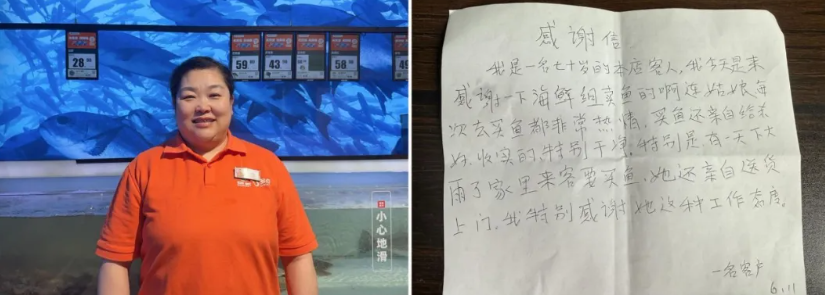 28
59
43
58
小心地滑
感谢信
我是一名七十岁的本店客人,我今天是来
感谢一下海鲜组卖鱼的啊莲姑娘每
次去买鱼都非常热情,买鱼还亲自给杀
好,收实的特别干净,特别是有一天下大
雨了家里来客要买鱼,她还亲自送货
上门,我特别感谢她这种工作态度。
一名客户
6.11